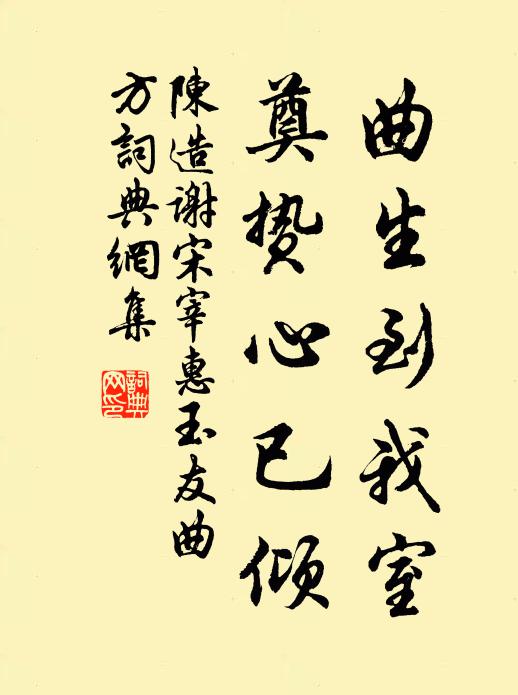 曲生到我室
奠贽心已倾
陳造謝宋宰惠玉友曲
方詞典網集
詞典網印